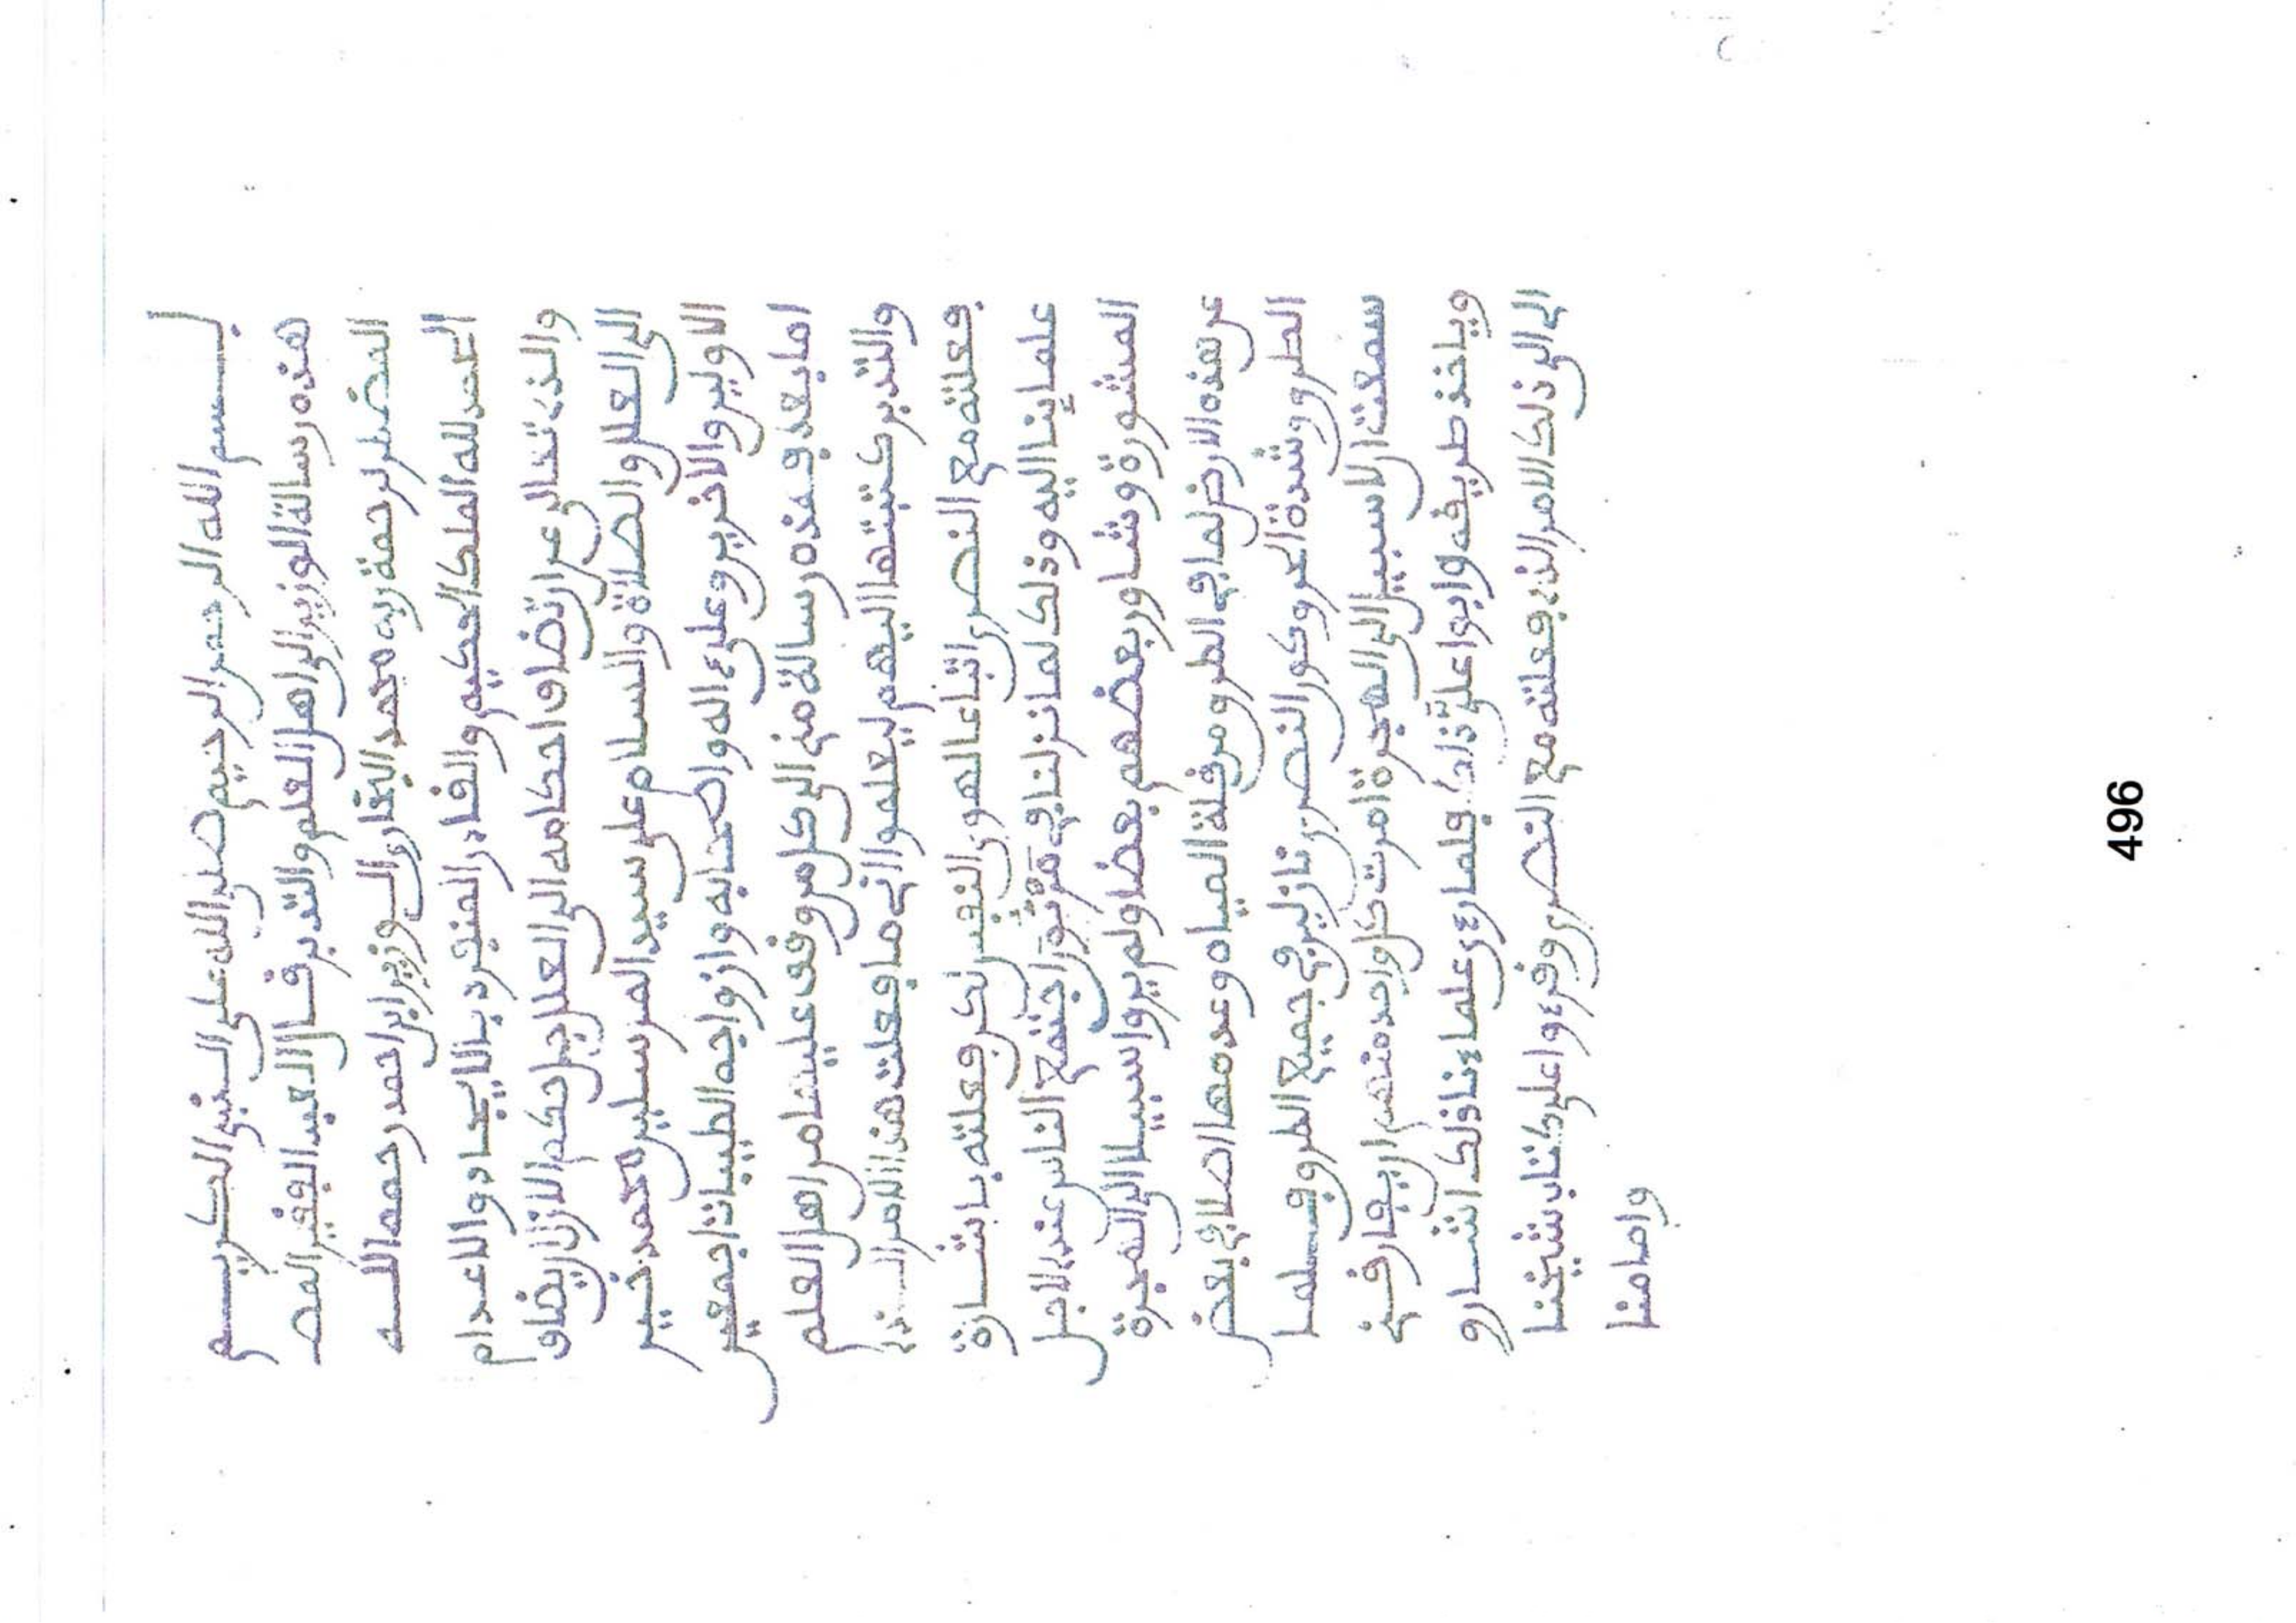 بسم الله الرحمن الرحيم صلى الله على النبي الكريم
هذه رسالة الوزير الى اهل العلم والتدبر قال العبد الفقير المضـ
المضطر لرحمة ربه محمد البخارى الوزير ابن احمد رحمه الله
الحمد لله الملك الحكيم والقاهر بالايجاد والاعدام
والذى تنزه عن احكامه الى العلل
الى العلل والصلاة والسلام على سيد المرسلين محمد خير
الاولين والاخرين وعلى ءاله واصحابه وازواجه الطيبات اجمعين
اما بعد فهذه رسالة من الى كل من وقف من اهل العلم
والتدبر كتبتها اليهم ليعلموا انى ما فعلت هذا الامر الذى
فعلته مع النصرى اتباعا لهوى النفس لكن فعلته باشارة
علمائنا اليه وذلك لما نزلنا فى اجتمع الناس عند الاجل
المشورة وشاور بعضهم بعضا ولم يروا سبيلا الى الهجرة
عن هذه الارض لما فى الطرق من قلة المياه وعدمها اصلا فى بعض
الطرق وشدة الحر وكون النصرى نازلين فى جميع الطرق فلما
سمعت ان لا سبيل الى الهجرة امرت كل واحد منهم ان يفارقنى
وياخذ طريقه وابوا على ذلك فلما رءى علماءنا ذلك اشارو
الى الى ذلك الامر الذى فعلته مع النصرى وقرءوا على كتاب شيخنا
وامامنا
496